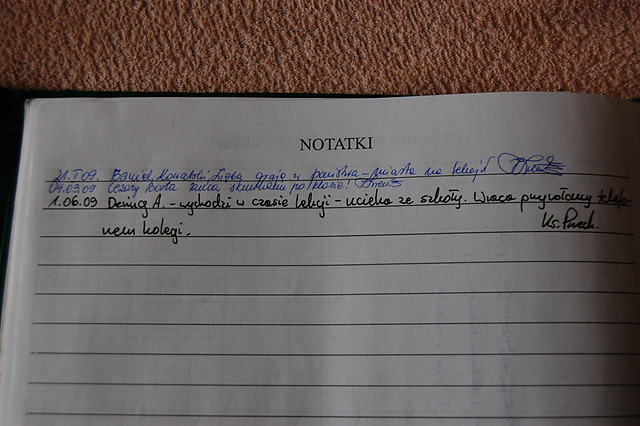 NOTATKI
21.I 09. Daniel Kowalski, Ligba grają w państwa-miasta na lekcji!
04.03.09 Cezary Borta rzuca skuwkami po klasie!
1.06.09 Dering A. - wychodzi w czasie lekcji - ucieka ze szkoły. Wraca przywołany telefo-
nem kolegi. Ks. Piech.